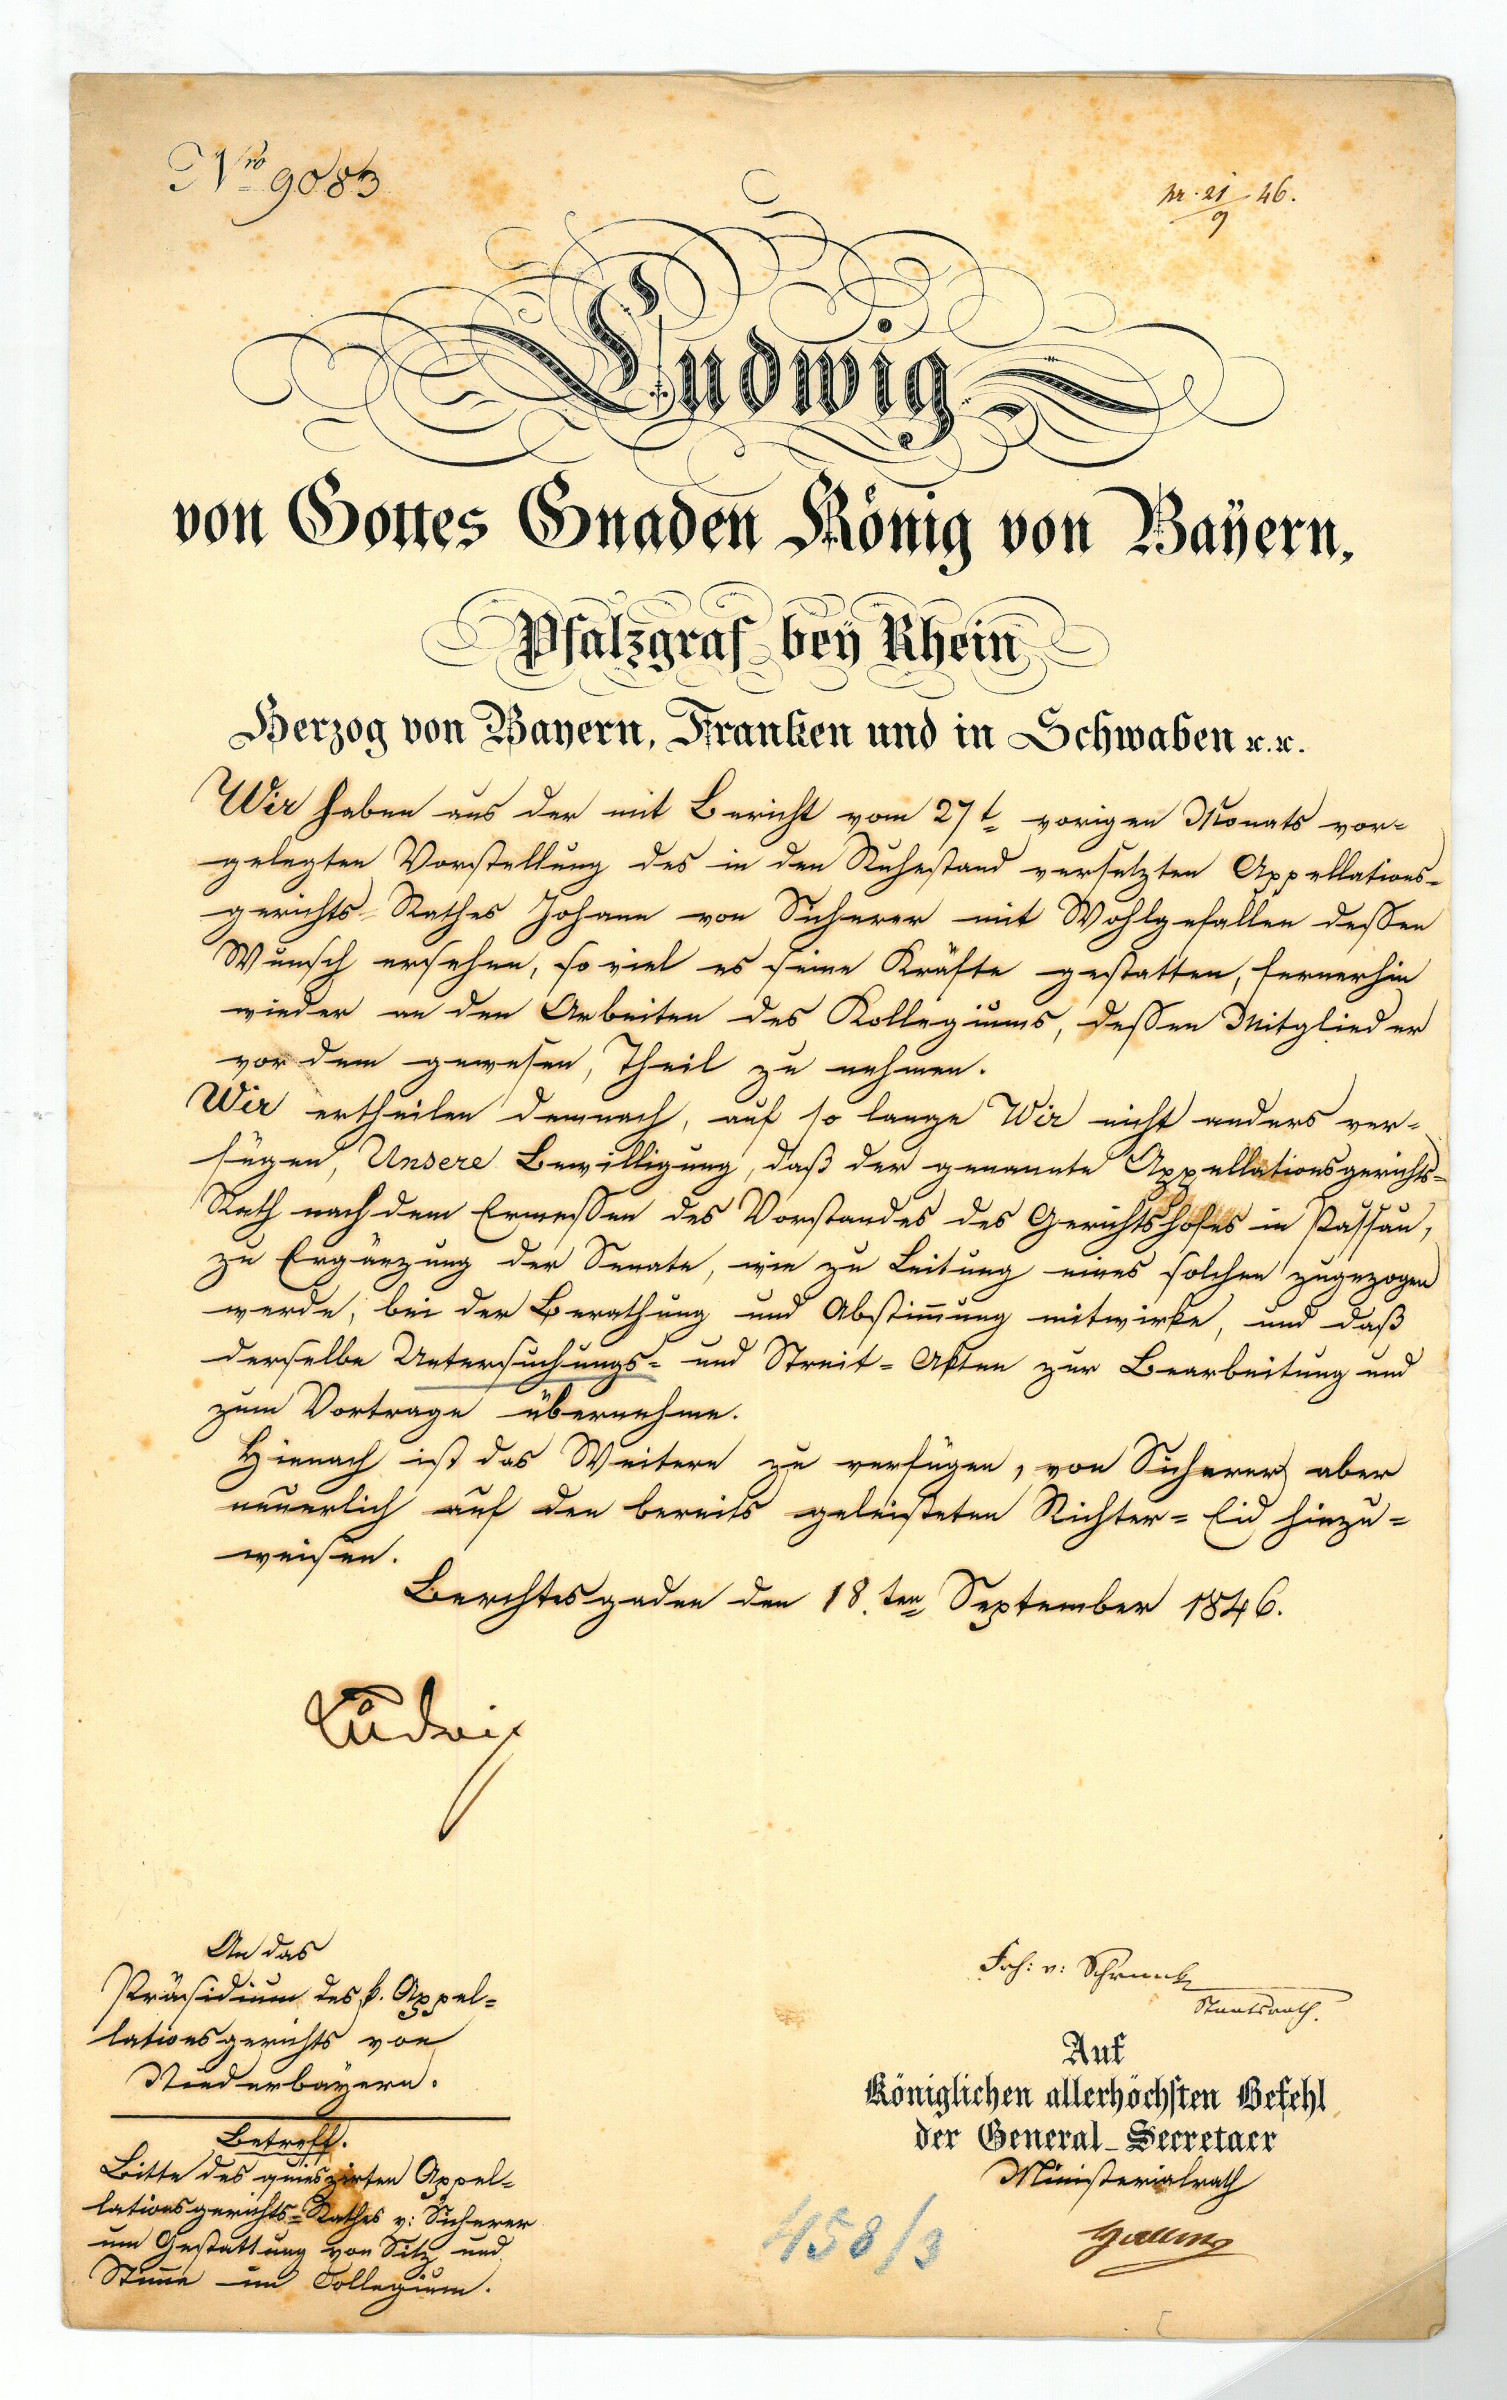 Nro 9083
pr. 21/9 46.
Ludwig
von Gottes Gnaden König von Bayern,
Pfalzgraf bey Rhein
Herzog von Bayern, Franken und in Schwaben ꝛc. ꝛc.
Wir haben aus der mit Bericht vom 27t vorigen Monats vor-
gelegten Vorstellung des in den Ruhestand versetzten Appellations-
gerichts-Rathes Johann von Sicherer mit Wohlgefallen dessen
Wunsch ersehen, so viel es seine Kräfte gestatten, fernerhin
wieder an den Arbeiten des Kollegiums, dessen Mitglied er
vordem gewesen, Theil zu nehmen.
Wir ertheilen demnach, auf so lange Wir nicht anders ver-
fügen, Unsere Bewilligung, daß der genannte Appellationsgerichts-
Rath nach dem Ermessen des Vorstandes des Gerichtshofes in Passau,
zu Ergänzung der Senate, wie zu Leitung eines solchen zugezogen
werde, bei der Berathung und Abstim̄ung mitwirke, und daß
derselbe Untersuchungs- und Streit-Akten zur Bearbeitung und
zum Vortrage übernehme.
Hienach ist das Weitere zu verfügen, von Sicherer aber
neuerlich auf den bereits geleisteten Richter-Eid hinzu-
weisen.
Berchtesgaden den 18.ten September 1846.
Ludwig
An das
Präsidium des k. Appel-
lationsgerichts von
Niederbayern.
Betreff.
Bitte des quieszirten Appel-
lationsgerichts-Rathes v: Sicherer
um Gestattung von Sitz und
Stim̄e im Collegium.
Frh: v: Schrenck
Staatsrath.
Auf
Königlichen allerhöchsten Befehl
der General-Secretaer
Ministerialrath
458/3